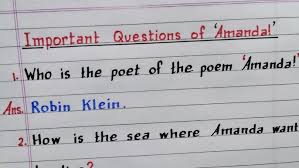 Important Questions of 'Amanda!'
1. Who is the poet of the poem 'Amanda!'
Ans. Robin Klein.
2. How is the sea where Amanda want